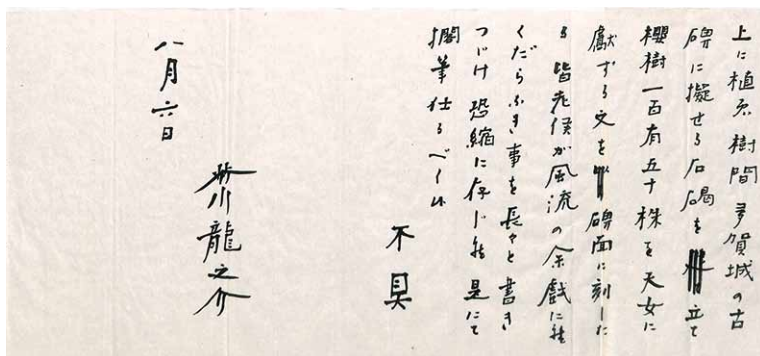 上に植ゑ樹間多賀城の古
碑に擬せる石碣を立て
櫻樹一百有五十株を天女に
獻ずる文を碑面に刻した
る皆老侯が風流の余戯に候
くだらぬ事を長々と書き
つゞけ恐縮に存じ候 是にて
擱筆仕るべく候
不具
八月六日
芥川龍之介